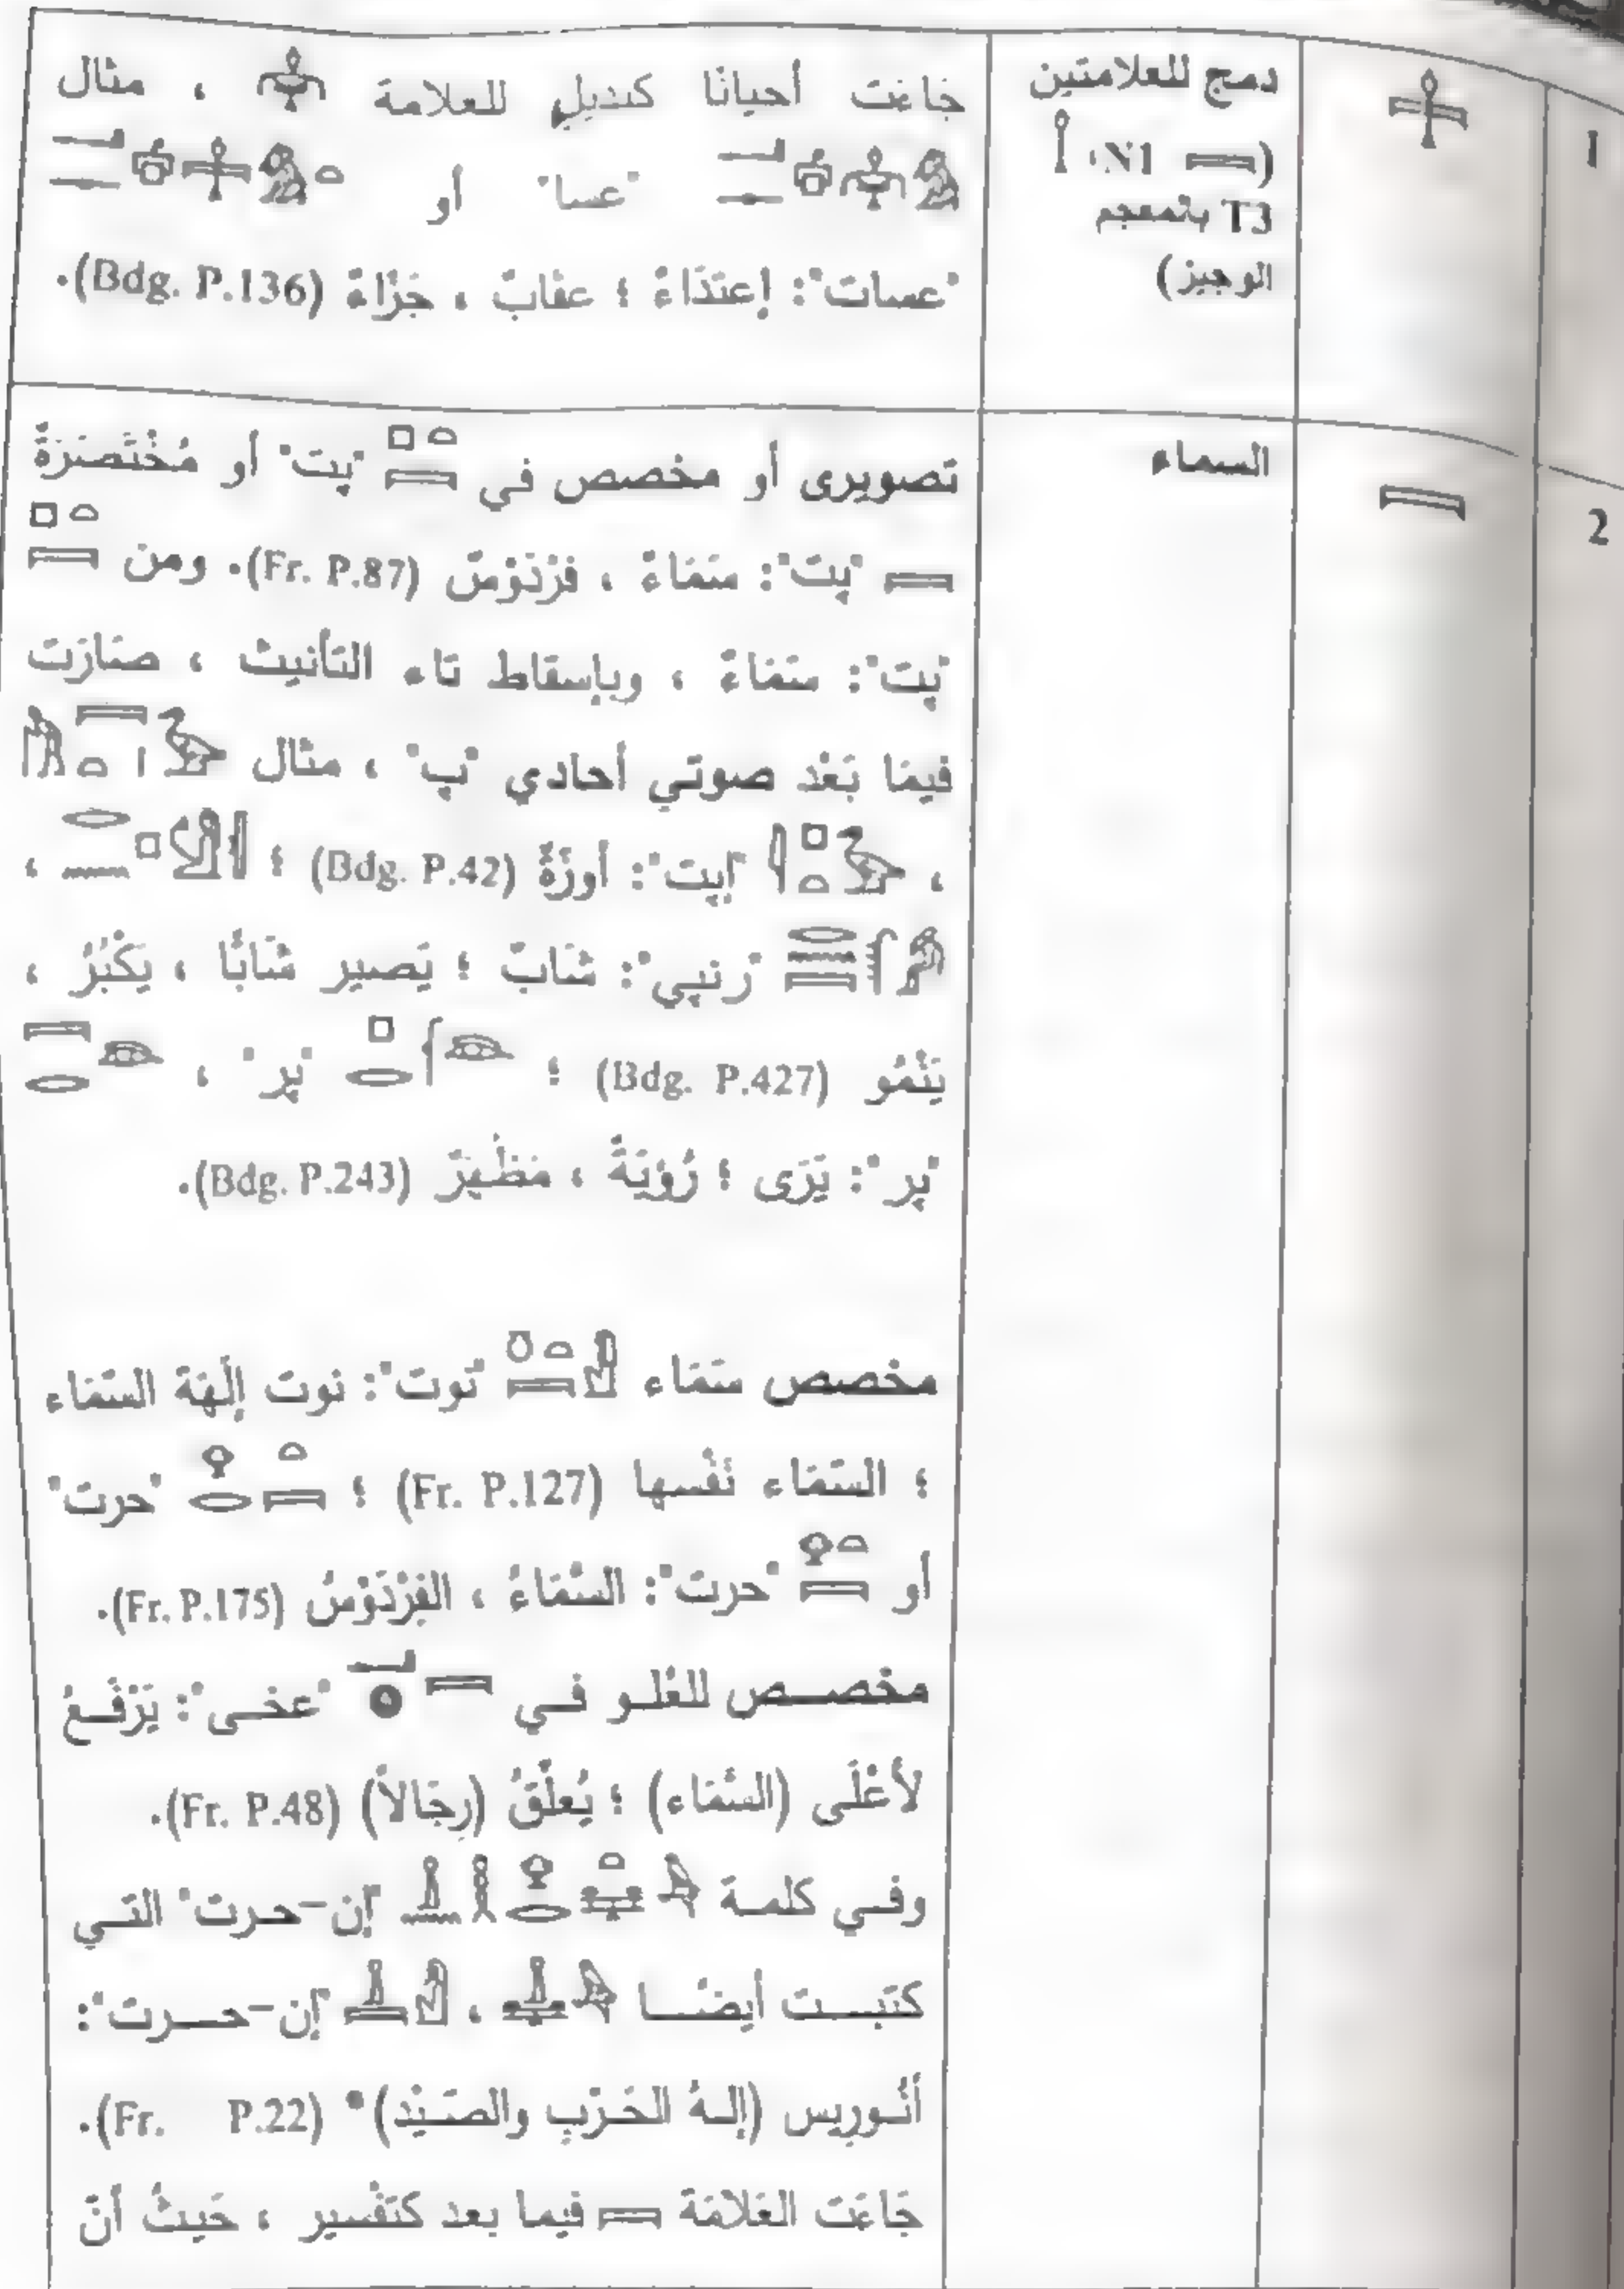 1
دمج للعلامتين
(𓇯 N1،𓌉
T3 بالمعجم
الوجيز)
جَاءَت أحيانًا كبَديلٍ للعلامة ، مثال
"عسا" أو
"عسات": إعتدَاءٌ ؛ عقَابٌ ، جَزْاءٌ (Bdg. P.136).
2
𓇯
السماء
تصويرى أو مخصص في 𓊪𓏏𓇯 "پت" أو مُخْتَصَرَةٌ
𓇯 "پت": سَمَاءٌ ، فرْدَوْسٌ (Fr. P.87). ومن 𓊪𓏏𓇯
"پت": سَمَاءٌ ، وبإسقاط تاء التأنيث ، صَارَت
فيمَا بَعْد صوتي أحادي "پ" ، مثال
، "اپت": أوزَّةٌ (Bdg. P.42) ؛ ،
"رنپي": شَابٌ ؛ يَصير شَابًا ، يَكْبُرُ ،
يَنْمُو (Bdg. P.427) ؛ "پر" ،
"پر": يَرَى ؛ رُؤيَةٌ ، مَظْهَرٌ (Bdg. P.243).
مخصص سَمَاء 𓏌𓏏𓇯 "نوت": نوت إلَهَة السَّمَاء
؛ السَّمَاء نَفْسها (Fr. P.127) ؛ 𓁷𓂋𓏏𓇯 "حرت"
أو 𓁷𓏏𓇯 "حرت": السَّمَاءُ ، الفِرْدَوْسُ (Fr. P.175).
مخصـــص للعُلـو فـي 𓂝𓐍𓇯 "عخـى": يَرْفَـعُ
لأعْلَى (السَّمَاء) ؛ يُعلِّقُ (رِجَالاً) (Fr. P.48).
وفـي كلمـة "إن-حـرت" التـي
كتبــت أيضًــا ، "إن-حـــرت":
أنُـوريس (إلـهُ الحَـرْبِ والصَّـيْد)* (Fr. P.22).
جَاءَت العَلامَة 𓇯 فيما بعد كتَفْسير ، حَيثُ أنّ